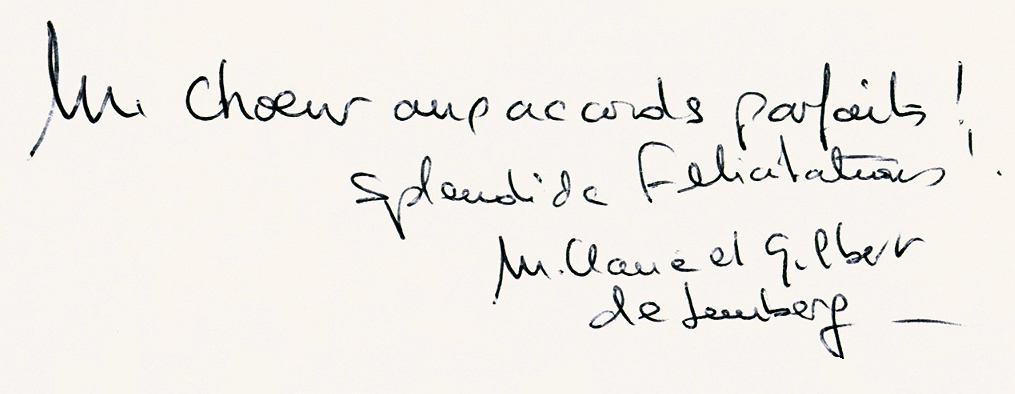 Un Choeur aux accords parfaits !
Splendide Félicitations !
M. Claire et Gilbert
de